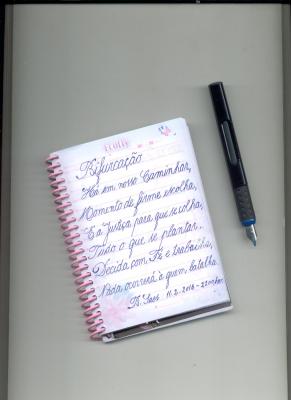 Bifurcação
Há em nosso Caminhar,
Momento de firme escolha,
E a Justiça para que se colha,
Tudo o que se plantar.
Decida com Fé e trabalha,
Nada ocorrerá a quem batalha.
11.2.2016 -